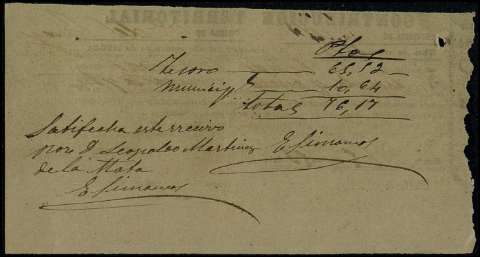 Ptas
Tesoro 65,52
Municip¹ 10,64
Total 76,17
Satifecha este recivo
por D Leopoldo Martinez
de la Mata
E Simancas
E Simancas